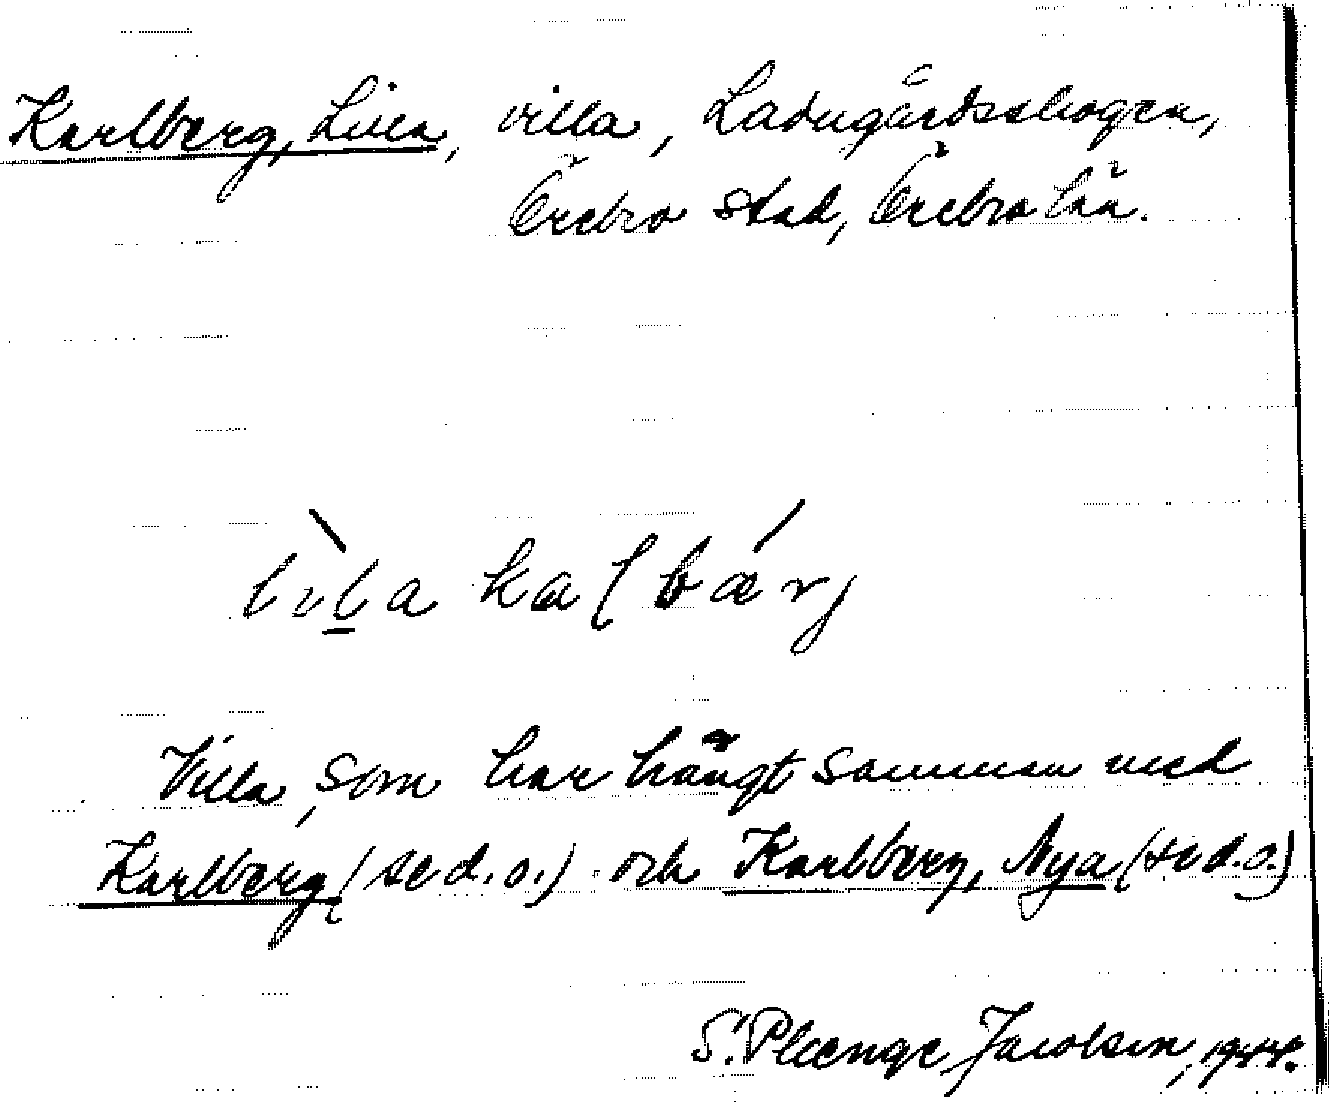 Karlberg, Lilla, villa, Ladugårdsskogen,
Örebro stad, Örebro län.
lìla kalbǽrj
Villa, som har hängt samman med
Karlberg (se d. o.) och Karlberg, Nya (se d. o.)
S. Plænge Jacobson, 1944.